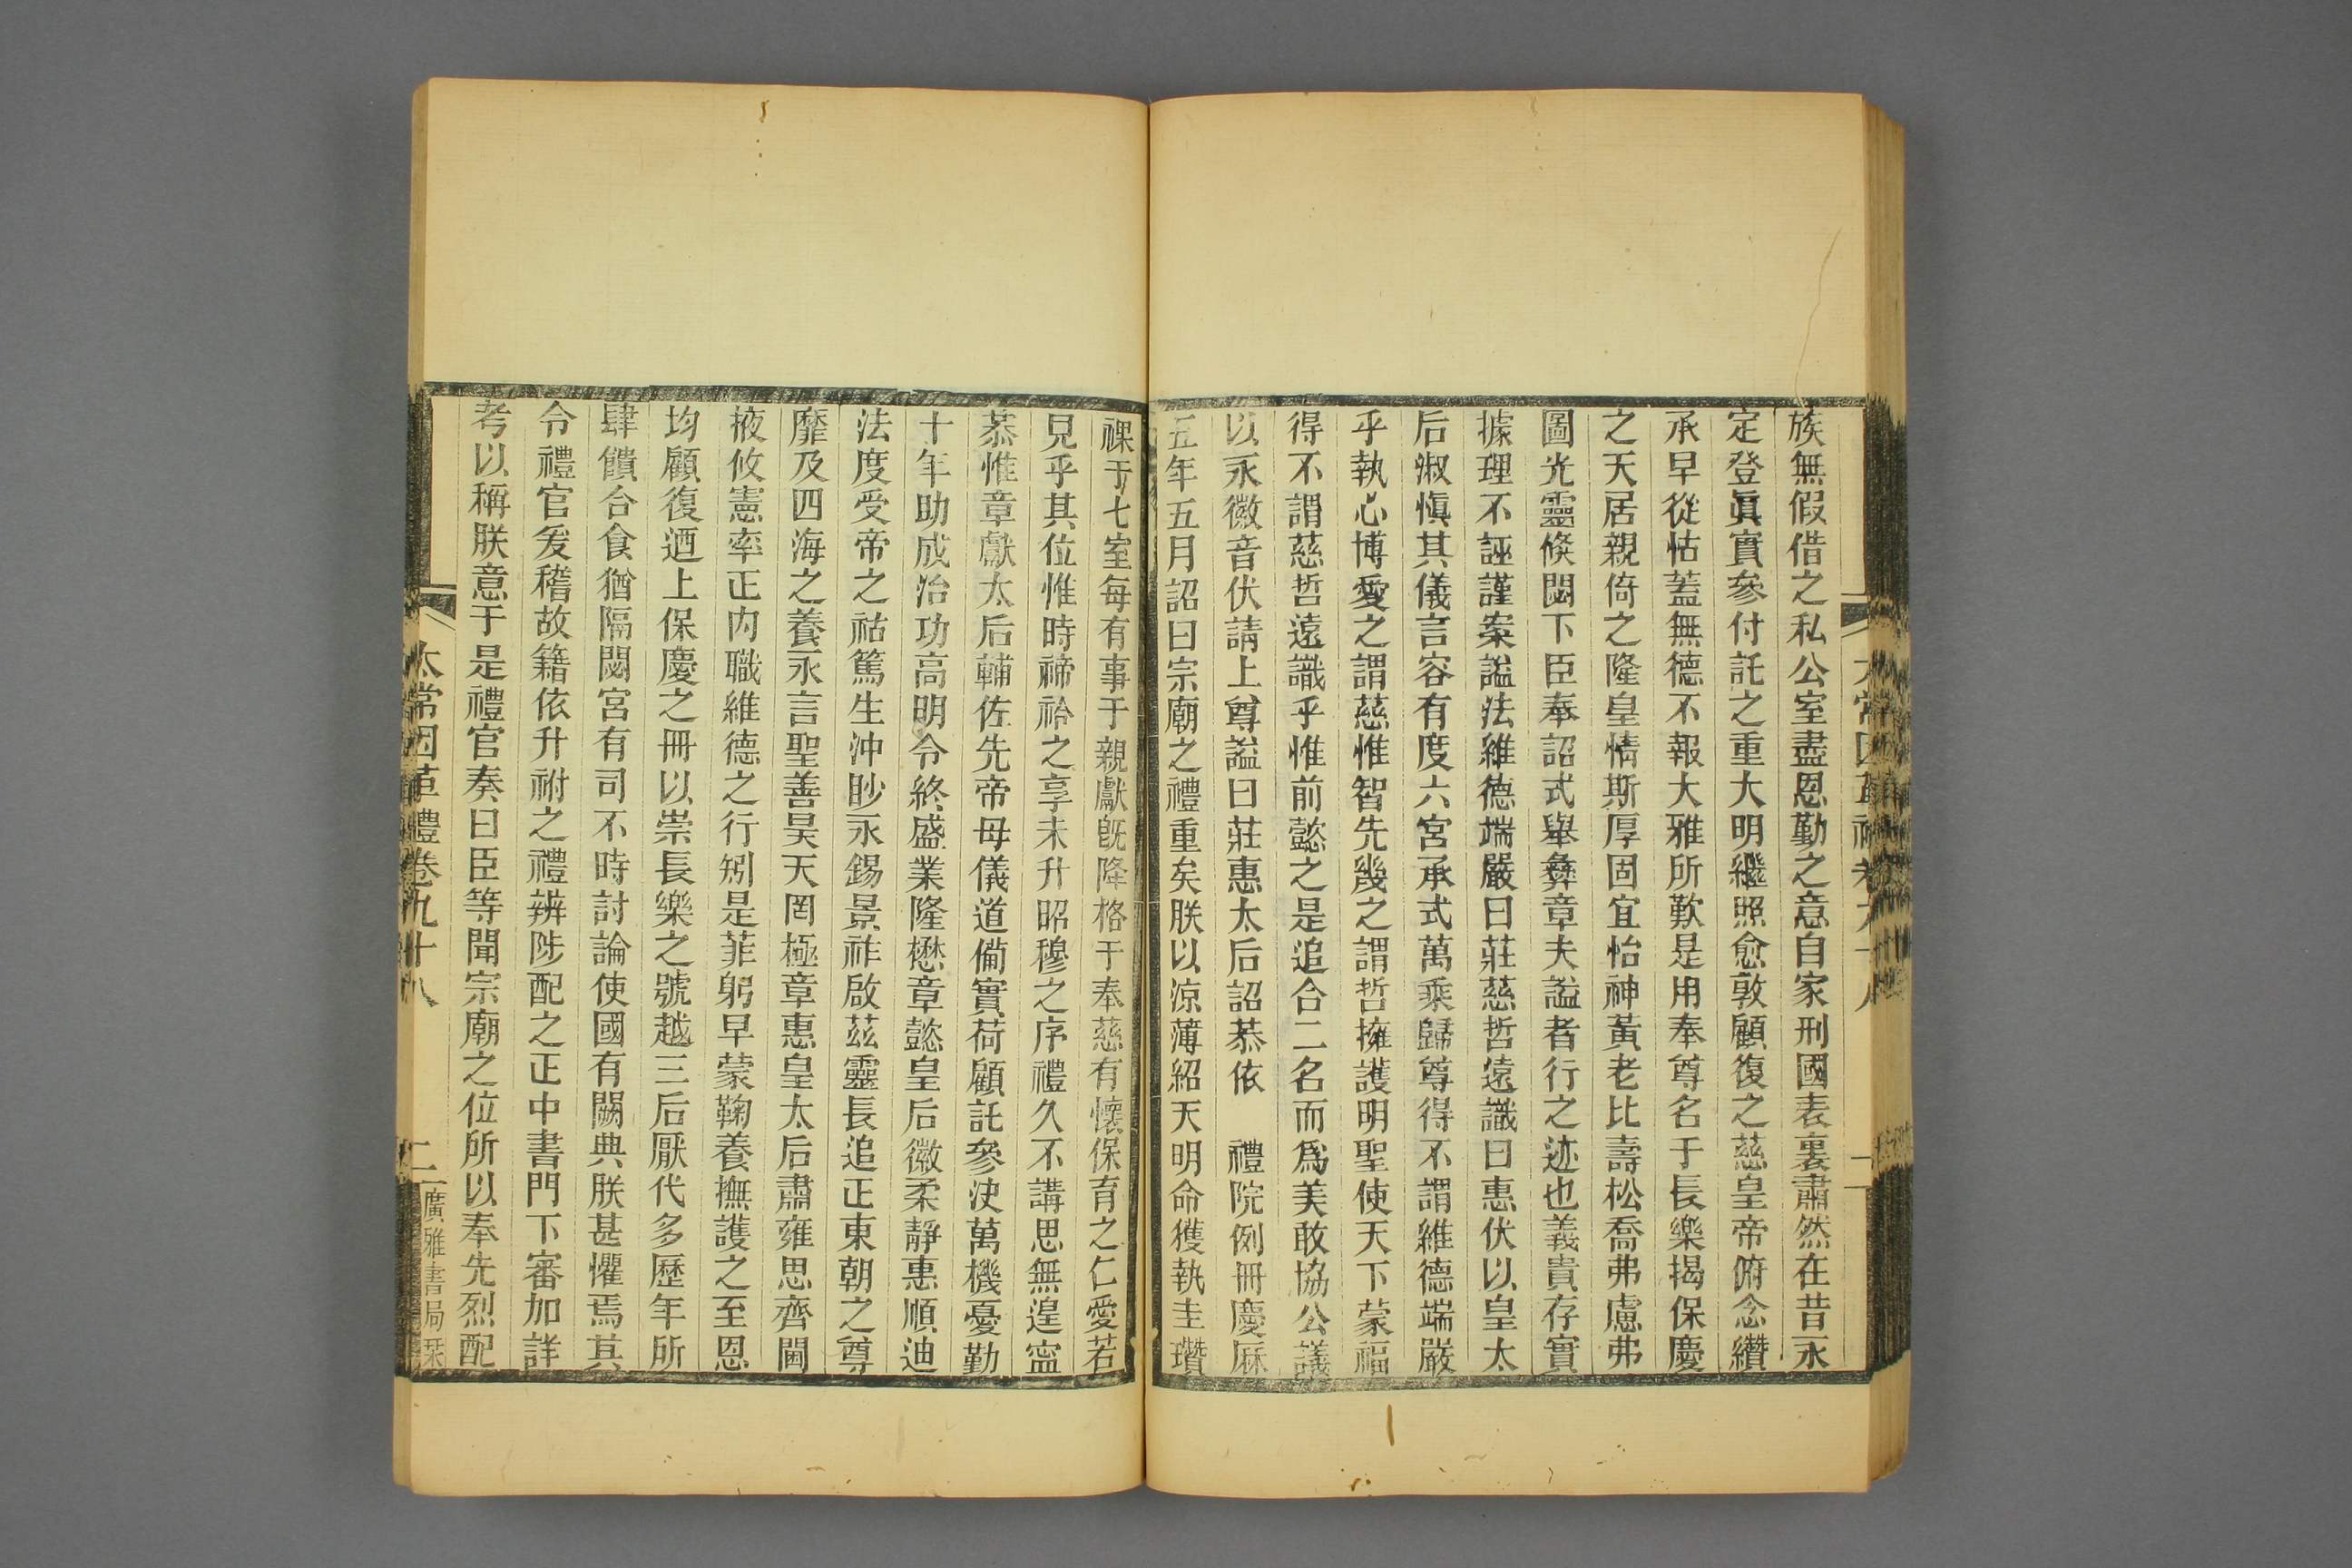 族無假借之私公室盡恩勤之意自家刑國表裏肅然在昔永
定登眞實參付託之重大明繼照愈敦顧復之慈皇帝俯念纘
承早從怙蓋無德不報大雅所歎是用奉尊名于長樂揭保慶
之天居親倚之隆皇情斯厚固宜怡神黃老比壽松喬弗慮弗
圖光靈倐閟下臣奉詔式舉彝章夫謚者行之迹也義貴存實
據理不誣謹案謚法維德端嚴曰莊慈哲遠識曰惠伏以皇太
后淑愼其儀言容有度六宮承式萬乘歸尊得不謂維德端嚴
乎執心博愛之謂慈惟智先幾之謂哲擁護明聖使天下蒙福
得不謂慈哲遠識乎惟前懿之是追合二名而爲美敢協公議
以永徽音伏請上尊謚曰莊惠太后詔恭依 禮院例冊慶厤
五年五月詔曰宗廟之禮重矣朕以涼薄紹天明命獲執圭瓚
祼于七室每有事于親獻旣降格于奉慈有懷保育之仁愛若
見乎其位惟時禘祫之享未升昭穆之序禮久不講思無遑寍
恭惟章獻太后輔佐先帝母儀道僃實荷顧託參決萬機憂勤
十年助成治功高明令終盛業隆懋章懿皇后徽柔靜惠順迪
法度受帝之祜篤生沖眇永錫景祚啟茲靈長追正東朝之尊
靡及四海之養永言聖善昊天罔極章惠皇太后肅雍思齊閫
掖攸憲率正内職維德之行矧是菲躬早蒙鞠養撫護之至恩
均顧復迺上保慶之冊以崇長樂之號越三后厭代多歷年所
肆饋合食猶隔閟宮有司不時討論使國有闕典朕甚懼焉其
令禮官爰稽故籍依升祔之禮辨陟配之正中書門下審加詳
考以稱朕意于是禮官奏曰臣等聞宗廟之位所以奉先烈配
太常因革禮卷九十八
二
廣雅書局栞